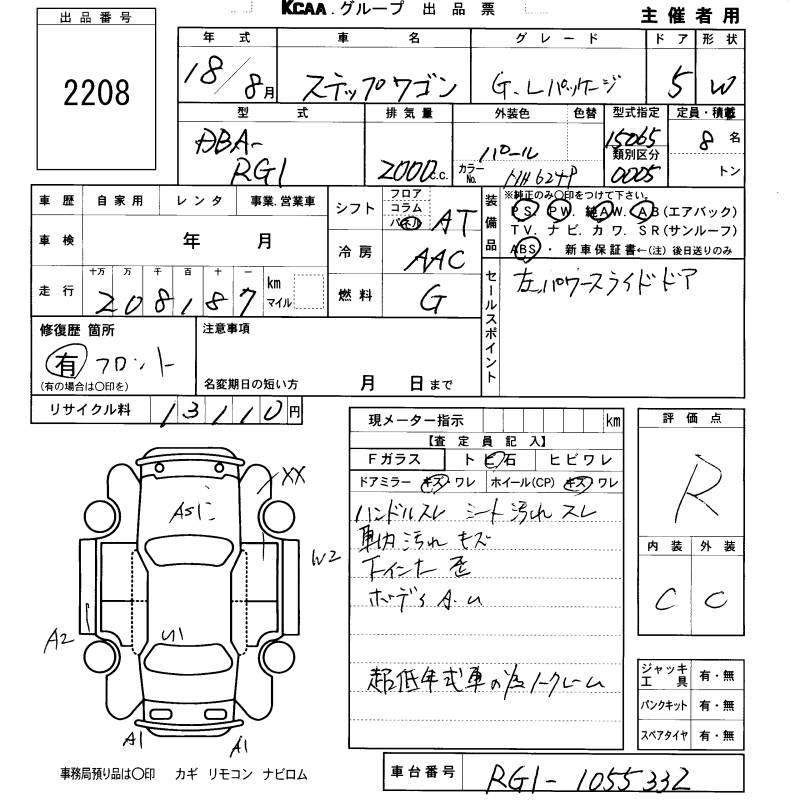 KCAA.グループ 出品票
主催者用
出品番号
2208
年式 車名 グレード ドア 形状
18/8月 ステップワゴン G.Lパッケージ 5 W
型式 排気量 外装色 色替 型式指定 定員・積載
DBA-RG1 2000c.c. パール 15065 8名
カラーNo. NH624P 類別区分 0005 トン
車歴 自家用 レンタ 事業.営業車
車検 年 月
走行 十万 万 千 百 十 一 km マイル
208187
シフト フロア コラム パネル AT
冷房 AAC
燃料 G
装備品
※純正のみ〇印をつけて下さい。
PS. PW. 純AW. AB(エアバック)
TV. ナビ. カワ. SR(サンルーフ)
ABS・新車保証書←(注)後日送りのみ
セールスポイント
左パワースライドドア
修復歴 箇所
有 フロント
(有の場合は〇印を)
注意事項
名変期日の短い方 月 日まで
リサイクル料 13110円
現メーター指示 km
【査定員記入】
Fガラス トビ石 ヒビワレ
ドアミラー キズ・ワレ ホイール(CP) キズ・ワレ
ハンドルスレ シート汚れ スレ
車内汚れ キズ
下インナー 歪
ボディ A.U
超低年式車の為ノークレーム
評価点
R
内装 外装
C C
ジャッキ工具 有・無
パンクキット 有・無
スペアタイヤ 有・無
XX
W2
U1
A2
A1
A1
事務局預り品は〇印 カギ リモコン ナビロム
車台番号 RG1-1055332